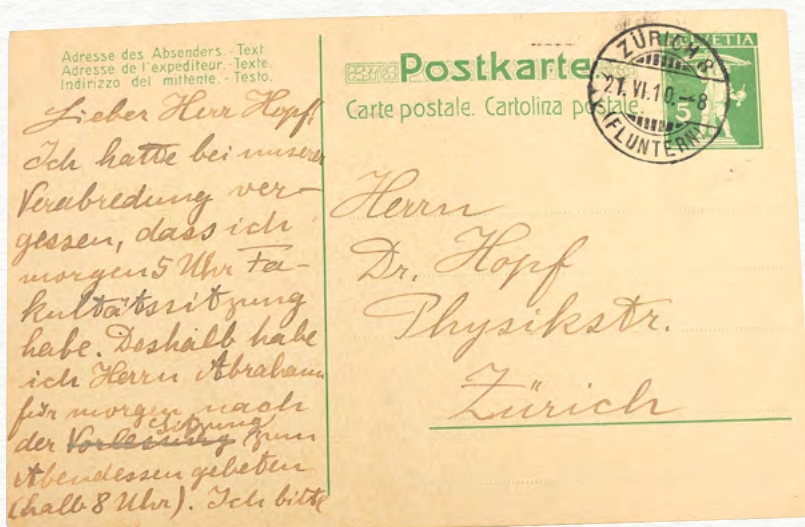 Adresse des Absenders. - Text.
Adresse de l'expéditeur. - Texte.
Indirizzo del mittente. - Testo.
Lieber Herr Hopf!
Ich hatte bei unserer
Verabredung ver-
gessen, dass ich
morgen 5 Uhr Fa-
kultätssitzung
habe. Deshalb habe
ich Herrn Abraham
für morgen nach
der Vorlesung Sitzung zum
Abendessen gebeten
(halb 8 Uhr). Ich bitte
Postkarte
Carte postale. Cartolina postale.
HELVETIA
5
ZÜRICH 8
21.VI.10.-8
(FLUNTERN)
Herrn
Dr. Hopf
Physikstr.
Zürich